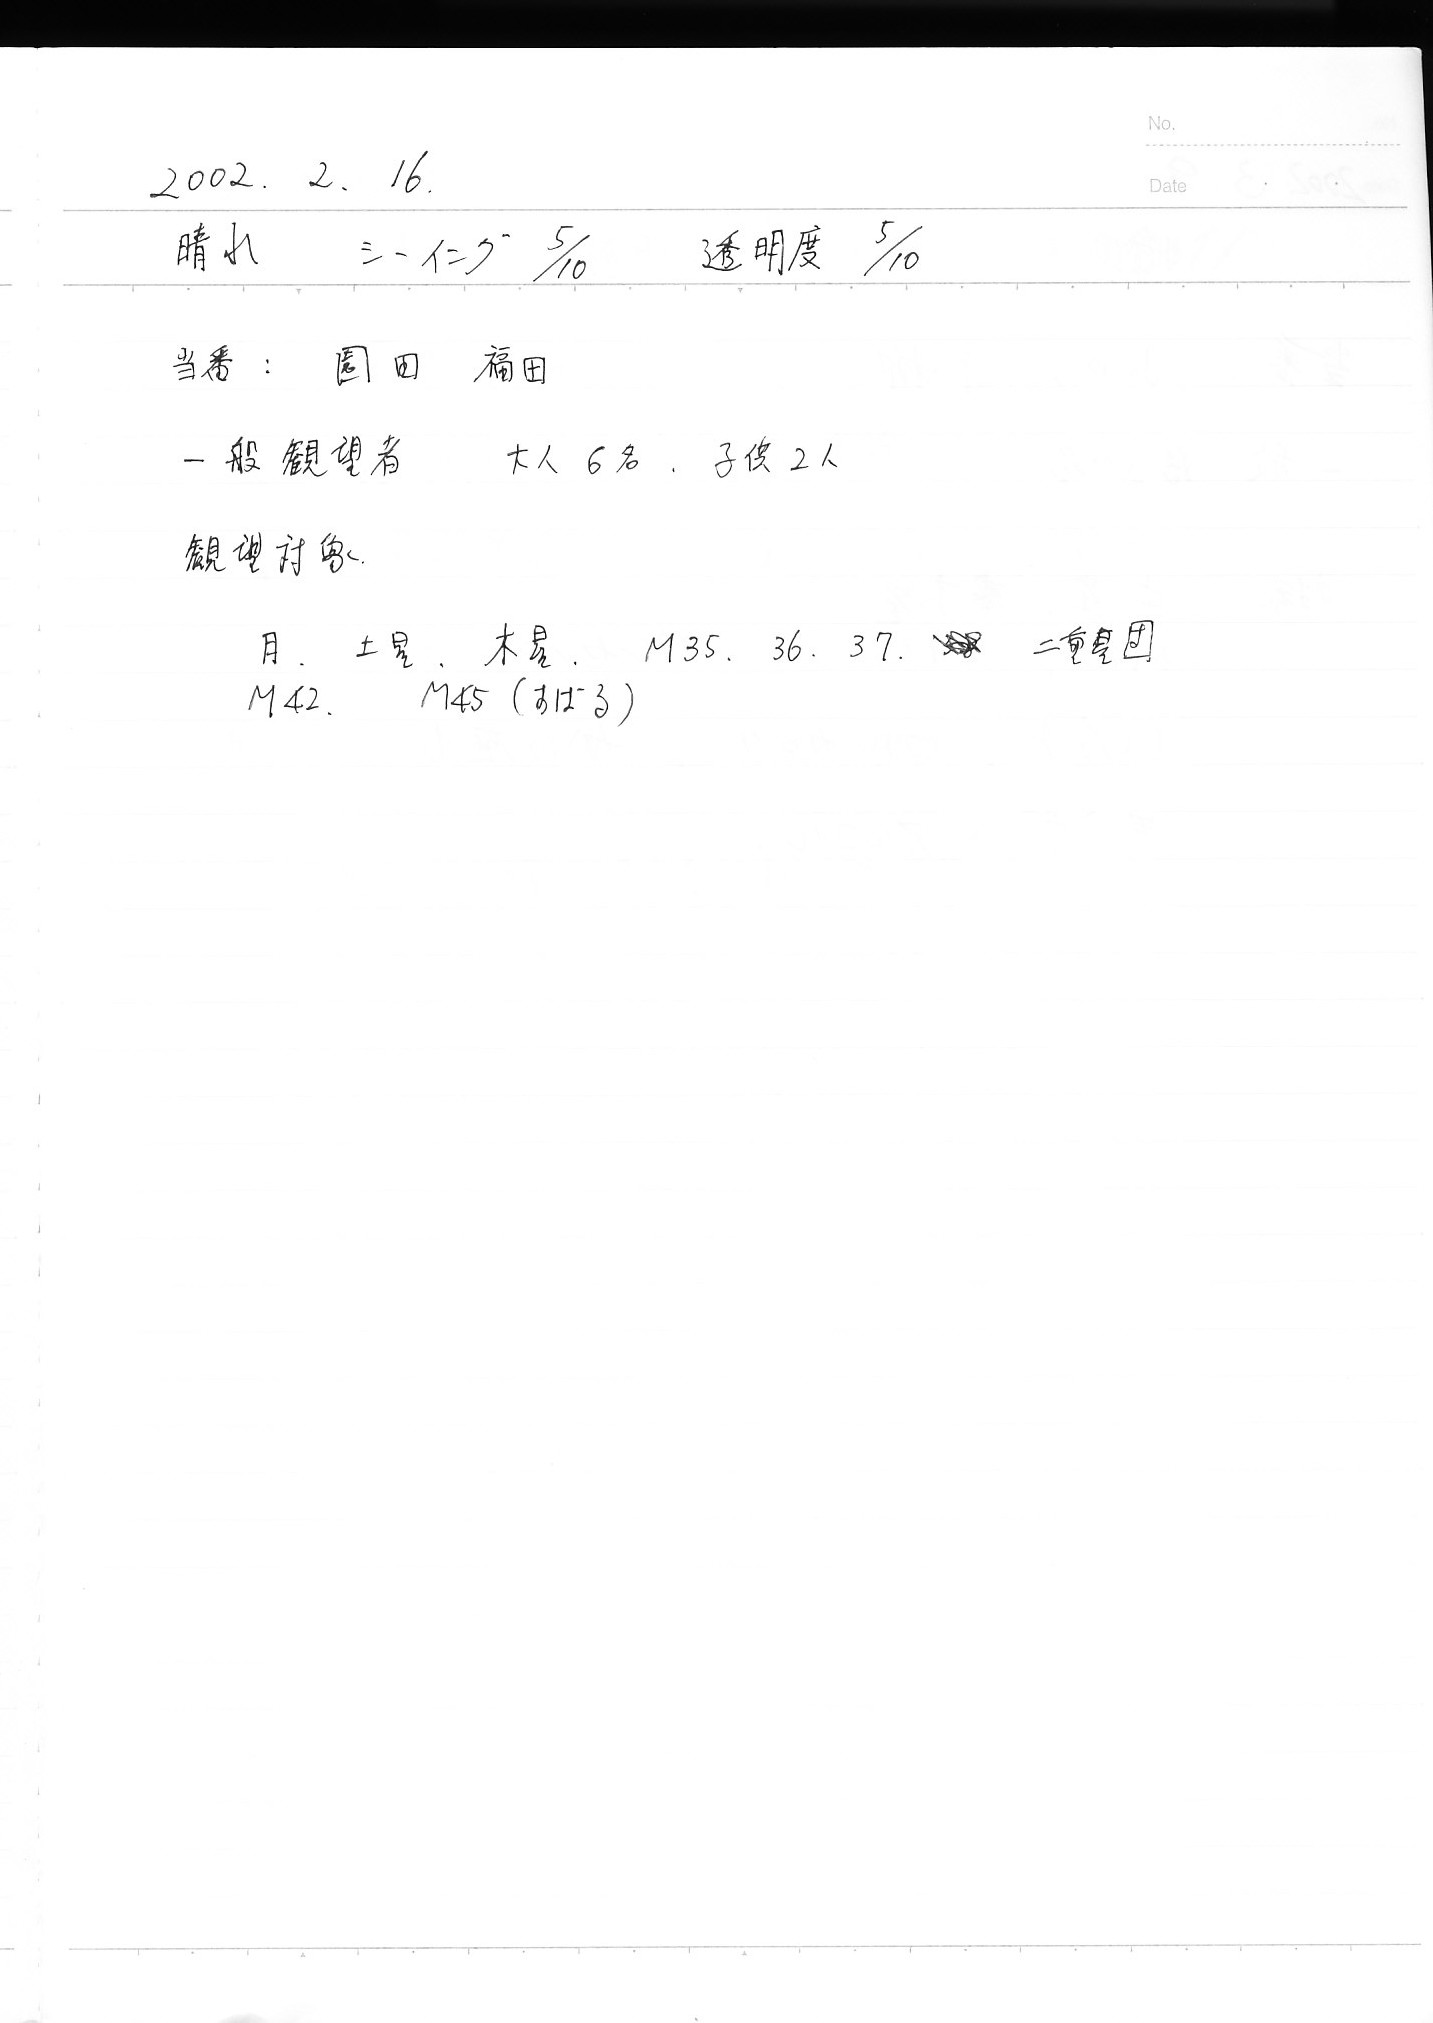 No.
Date
2002. 2. 16.
晴れ シーイング 5/10 透明度 5/10
当番: 園田 福田
一般観望者 大人6名. 子供2人
観望対象.
月. 土星. 木星. M35. 36. 37. 二重星団
M42. M45(すばる)